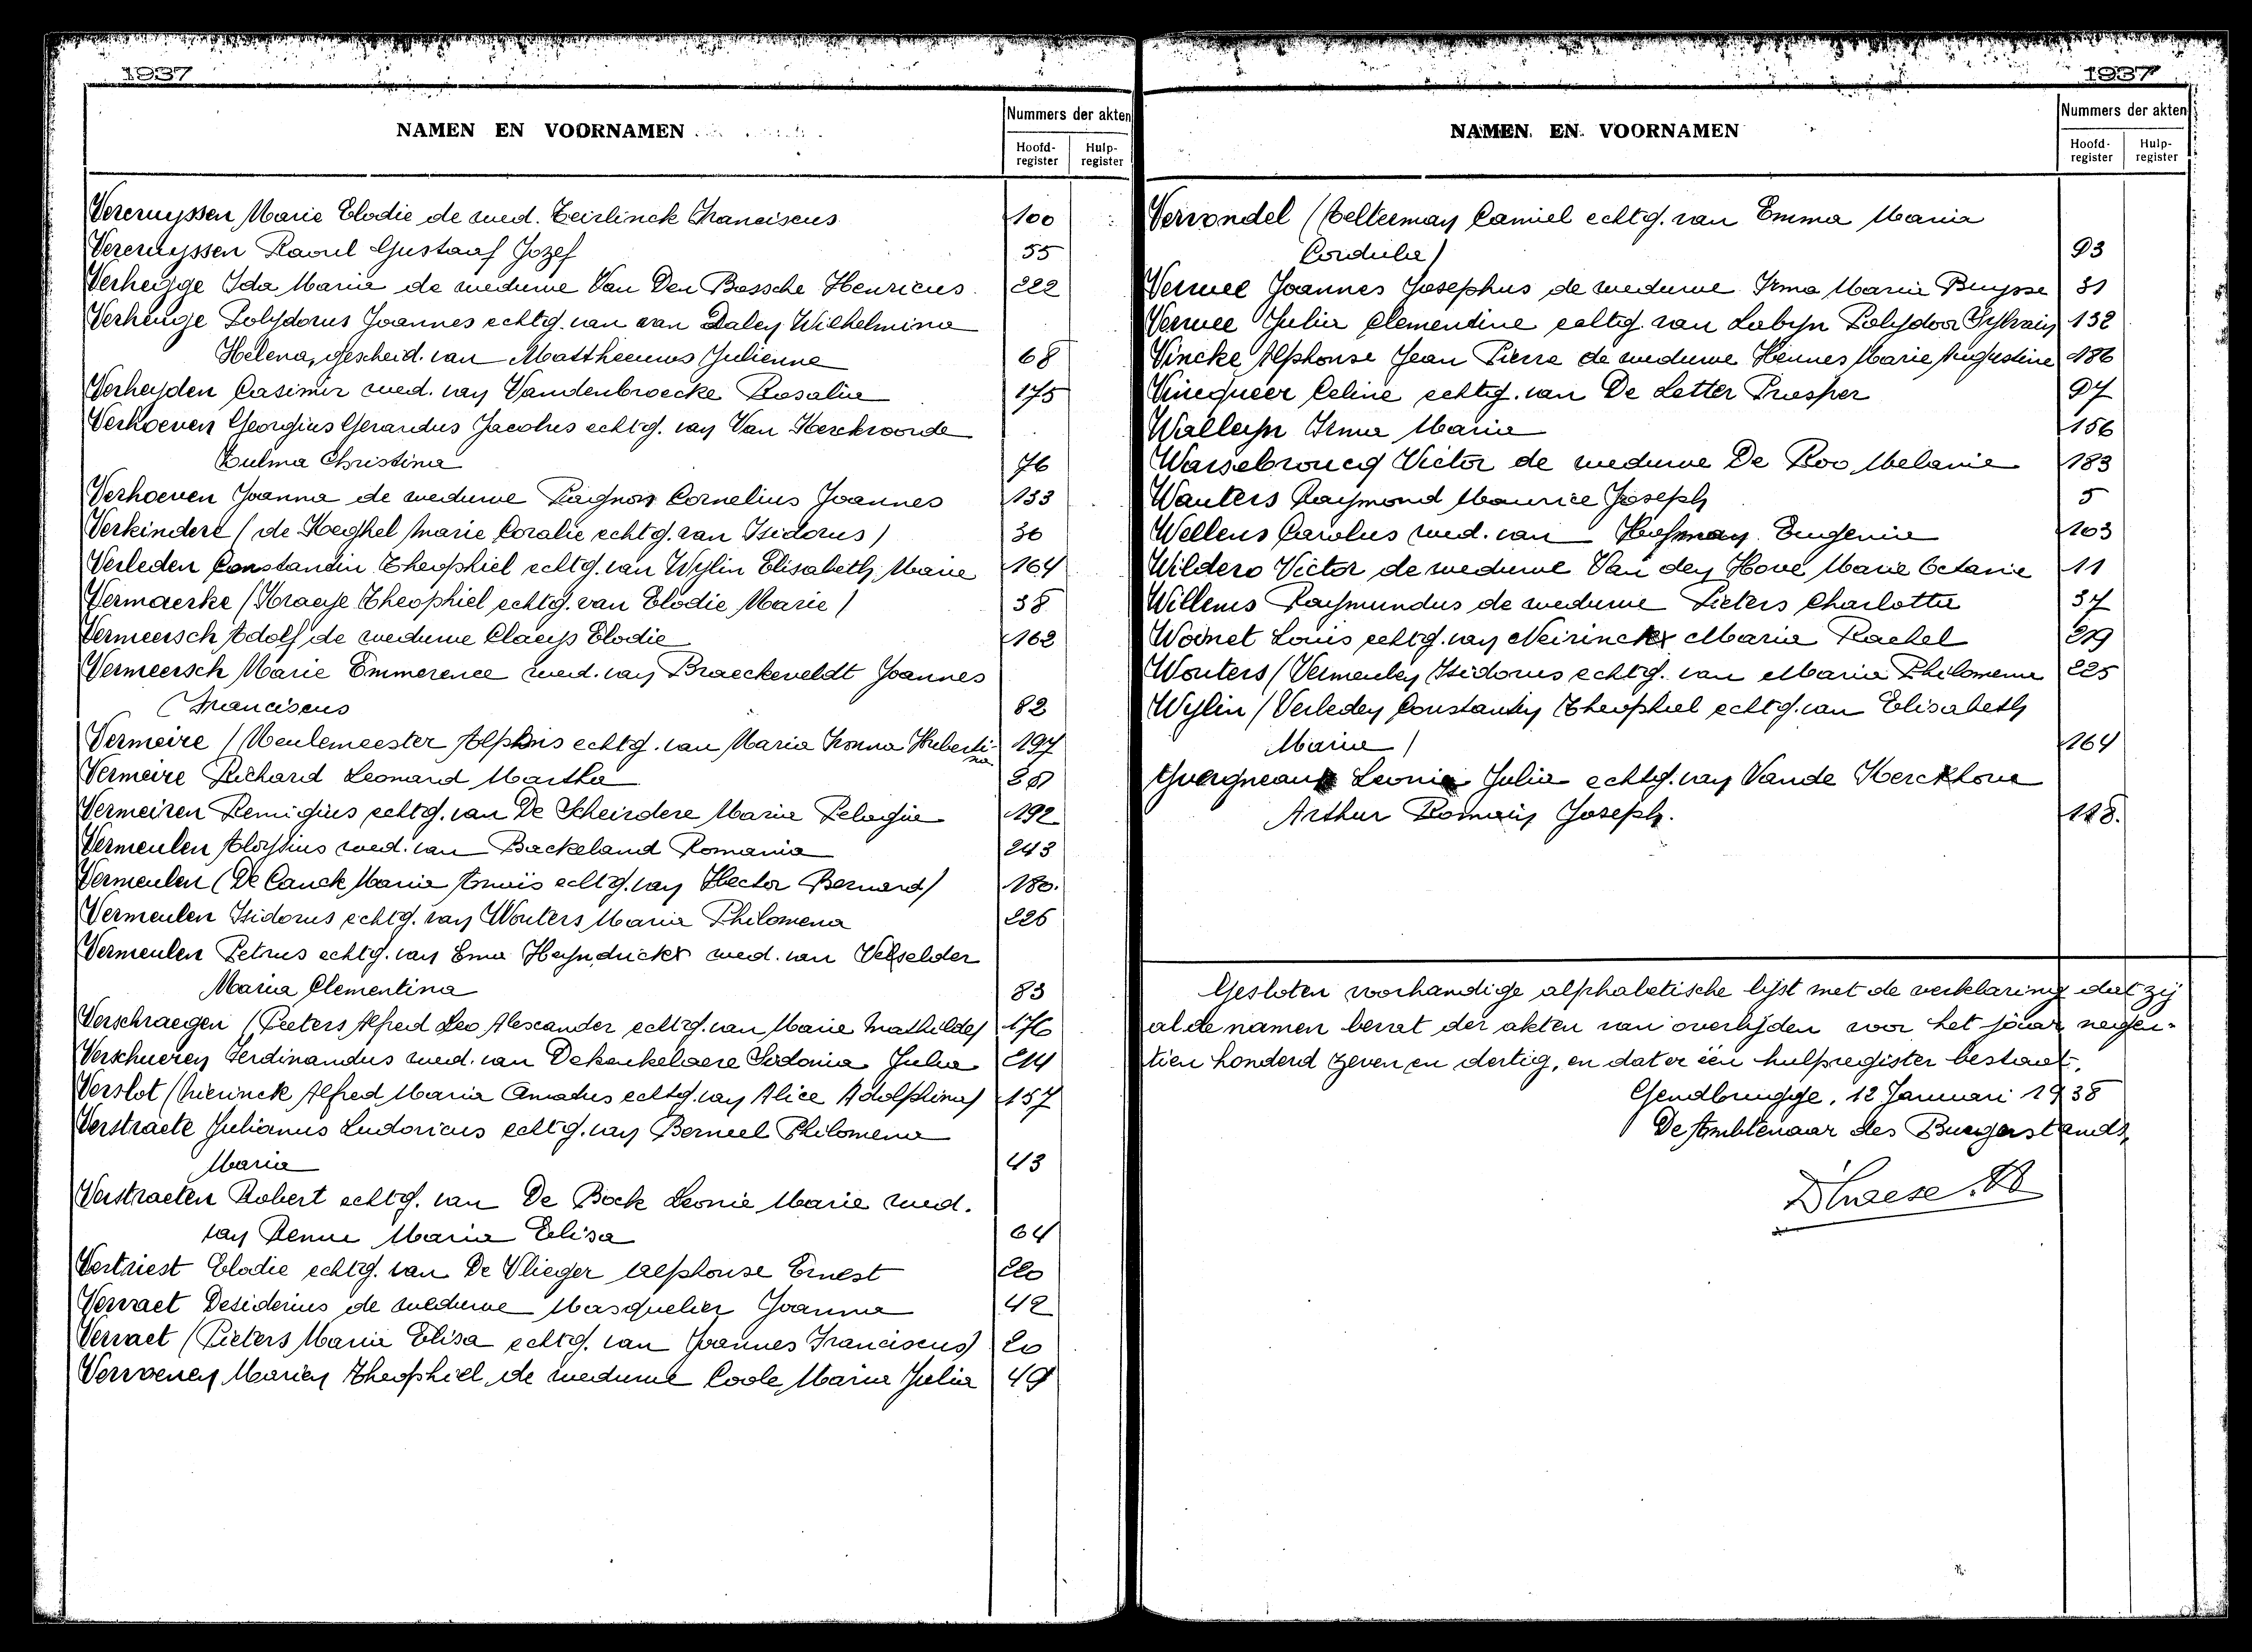 1937
NAMEN EN VOORNAMEN
Nummers der akten
Hoofd-register
Hulp-register
Vercruyssen Marie Elodie de wed. Teirlinck Franciscus 100
Vercruyssen Raoul Gustaaf Jozef 55
Verhegge Ida Maria de weduwe Van Den Bossche Henricus 222
Verhenge Polydorus Joannes echtg. van van Dalen Wilhelmina
Helena, gescheid. van Mattheeuws Julienne 68
Verheyden Casimir wed. van Vandenbroecke Rosalia 175
Verhoeven Georgius Gerardus Jacobus echtg. van Van Kerckvoorde
Zulma Christina 76
Verhoeven Joanna de weduwe Pagnon Cornelius Joannes 133
Verkindere (de Keghel Marie Coralie echtg. van Isidorus) 30
Verleden Constandin Theophiel echtg. van Wylin Elisabeth Marie 164
Vermaerke (Kraeye Theophiel echtg. van Elodie Marie) 38
Vermeersch Adolf de weduwe Claeys Elodie 162
Vermeersch Marie Emmerence wed. van Braeckeveldt Joannes
Franciscus 82
Vermeire (Meulemeester Alphons echtg. van Maria Huberti-
na 197
Vermeire Richard Leonard Martha
Vermeiren Remigius echtg. van De Scheirdere Maria Pelagie 192
Vermeulen Aloysius wed. van Backeland Romania 243
Vermeulen (De Canck Maria echtg. van Hector Bernard) 180.
Vermeulen Isidorus echtg. van Wouters Maria Philomena 225
Vermeulen Petrus echtg. van Ema Heyndrickx wed. van Velselder
Maria Clementina 83
Verschraegen (Peeters Alfred Leo Alexander echtg. van Marie Mathilde) 176
Verschueren Ferdinandus wed. van Dekeukelaere Sidonia Julia 214
Verslot (Nierinck Alfred Maria Amadus echtg. van Alice Adolphina) 157
Verstraete Julianus Ludovicus echtg. van Berneel Philomena
Maria 43
Verstraeten Robert echtg. van De Bock Leonie Marie wed.
van Maria Elisa 64
Vertriest Elodie echtg. van De Vlieger Alphonse Ernest 220
Vervaet Desiderius de weduwe Masquelier Joanna 42
Vervaet (Pieters Maria Elisa echtg. van Joannes Franciscus) 20
Vervoenen Marien Theophiel de weduwe Coole Maria Julia 49
1937
NAMEN EN VOORNAMEN
Nummers der akten
Hoofd-register
Hulp-register
Vervondel (Aelterman Camiel echtg. van Emma Maria
Cordula) 93
Verwee Joannes Josephus de weduwe Irma Maria Buysse 31
Verwee Julia Clementine echtg. van Lobyn Polydoor Sylvain 132
Vincke Alphonse Jean Pierre de weduwe Hennes Marie Augustine 186
Vinequeer Celine echtg. van De Letter Prosper 97
Walleyn Irma Maria 156
Warsebroucq Victor de weduwe De Roo Melanie 183
Wauters Raymond Maurice Joseph 5
Wellens Carolus wed. van Hofman Eugenie 103
Wildero Victor de weduwe Van den Hove Marie Octavie 11
Willems Raymundus de weduwe Pieters Charlotta 37
Woinet Louis echtg. van Neirinckx Maria Rachel 219
Wouters (Vermeulen Isidorus echtg. van Maria Philomena 225
Wylin (Verleden Constantin Theophiel echtg. van Elisabeth
Maria) 164
Leonie Julia echtg. van Vande Kerckhove
Arthur Romain Joseph. 118.
Gesloten voorhandige alphabetische lijst met de verklaring dat zij
al de namen bevat der akten van overlijden voor het jaar negen-
tien honderd zeven en dertig, en dat er een hulpregister bestaat.
Gendbrugge, 12 Januari 1938
De Ambtenaar des Burgerstands,